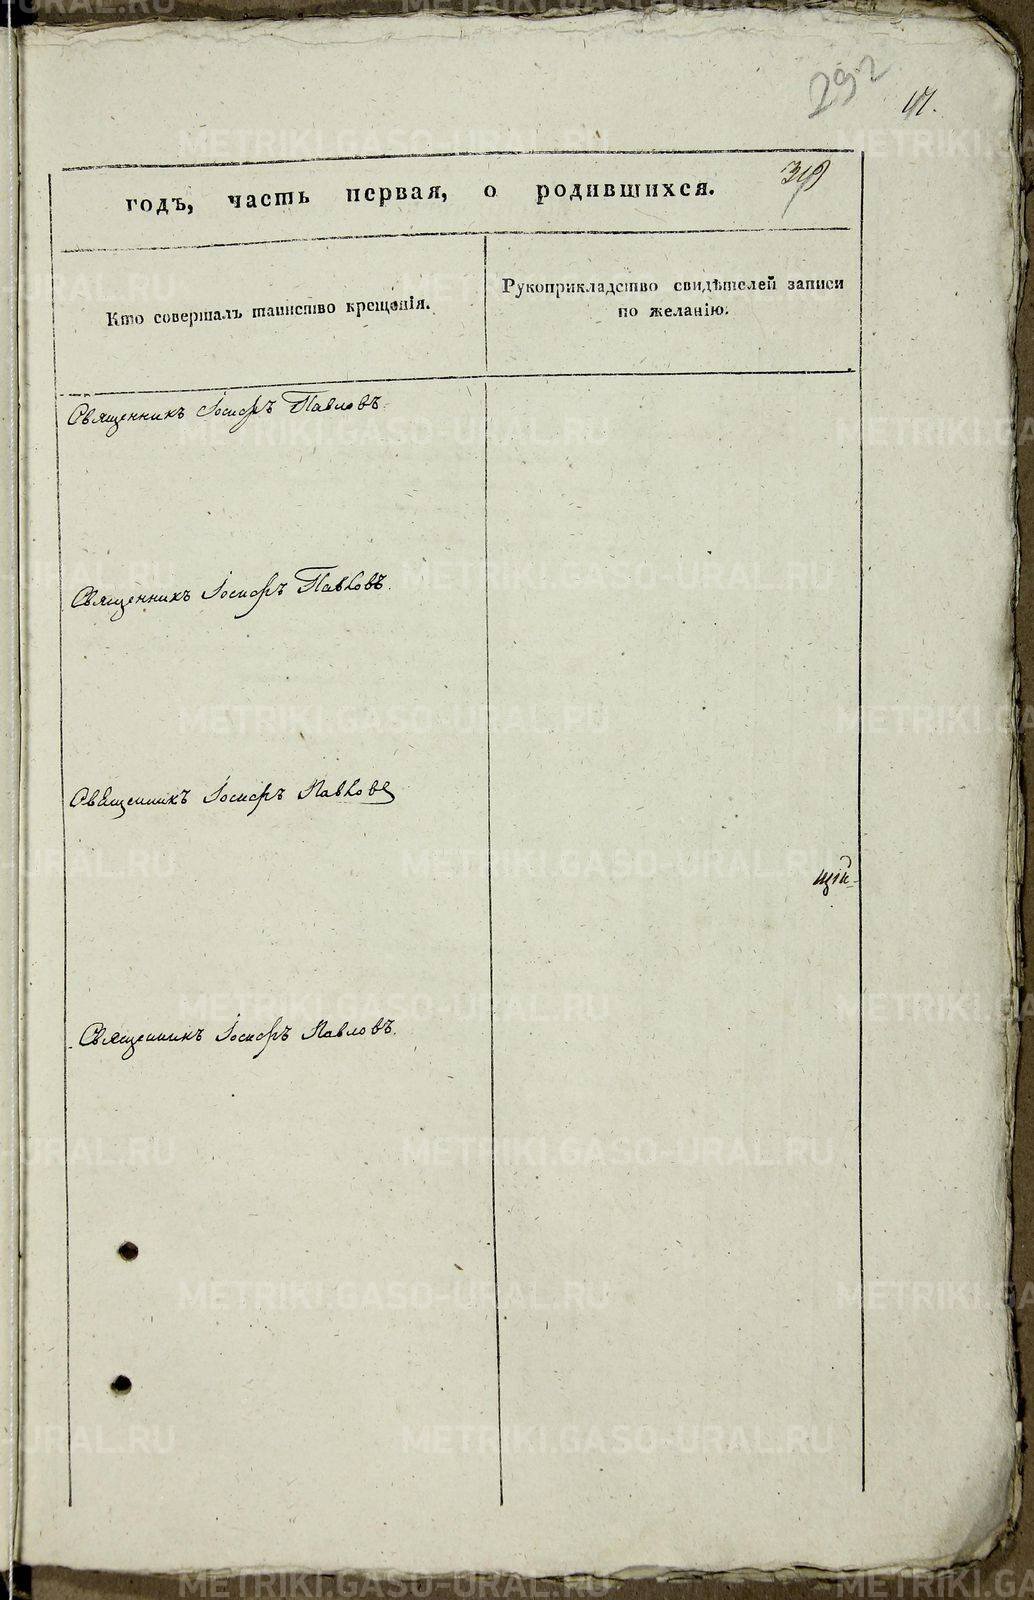 292
41.
349
годъ, часть первая, о родившихся.
Кто совершалъ таинство крещенія.
Рукоприкладство свидѣтелей записи
по желанію.
Священникъ Іосифъ Павловъ.
Священникъ Іосифъ Павловъ.
Священникъ Іосифъ Павловъ
щій
Священникъ Іосифъ Павловъ.
METRIKI.GASO-URAL.RU